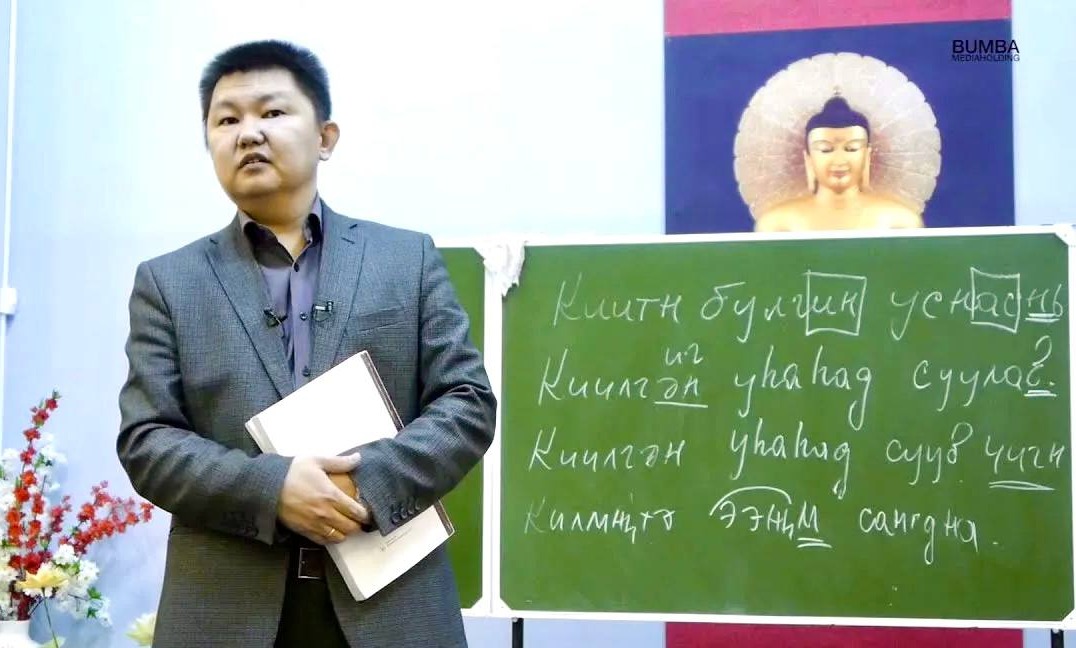 BUMBA
MEDIAHOLDING
Киитн булгин уснаснь
иг
Киилгән уһаһад суулав.
Киилгән уһаһад суув чигн
Килмҗтә ээҗм сангдна.